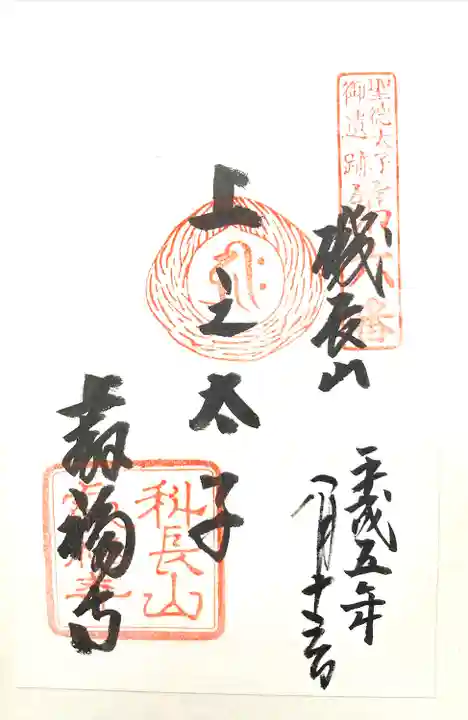 聖徳太子
御遺跡
磯長山
上之太子
叡福寺
科長山
平成五年
八月十六日